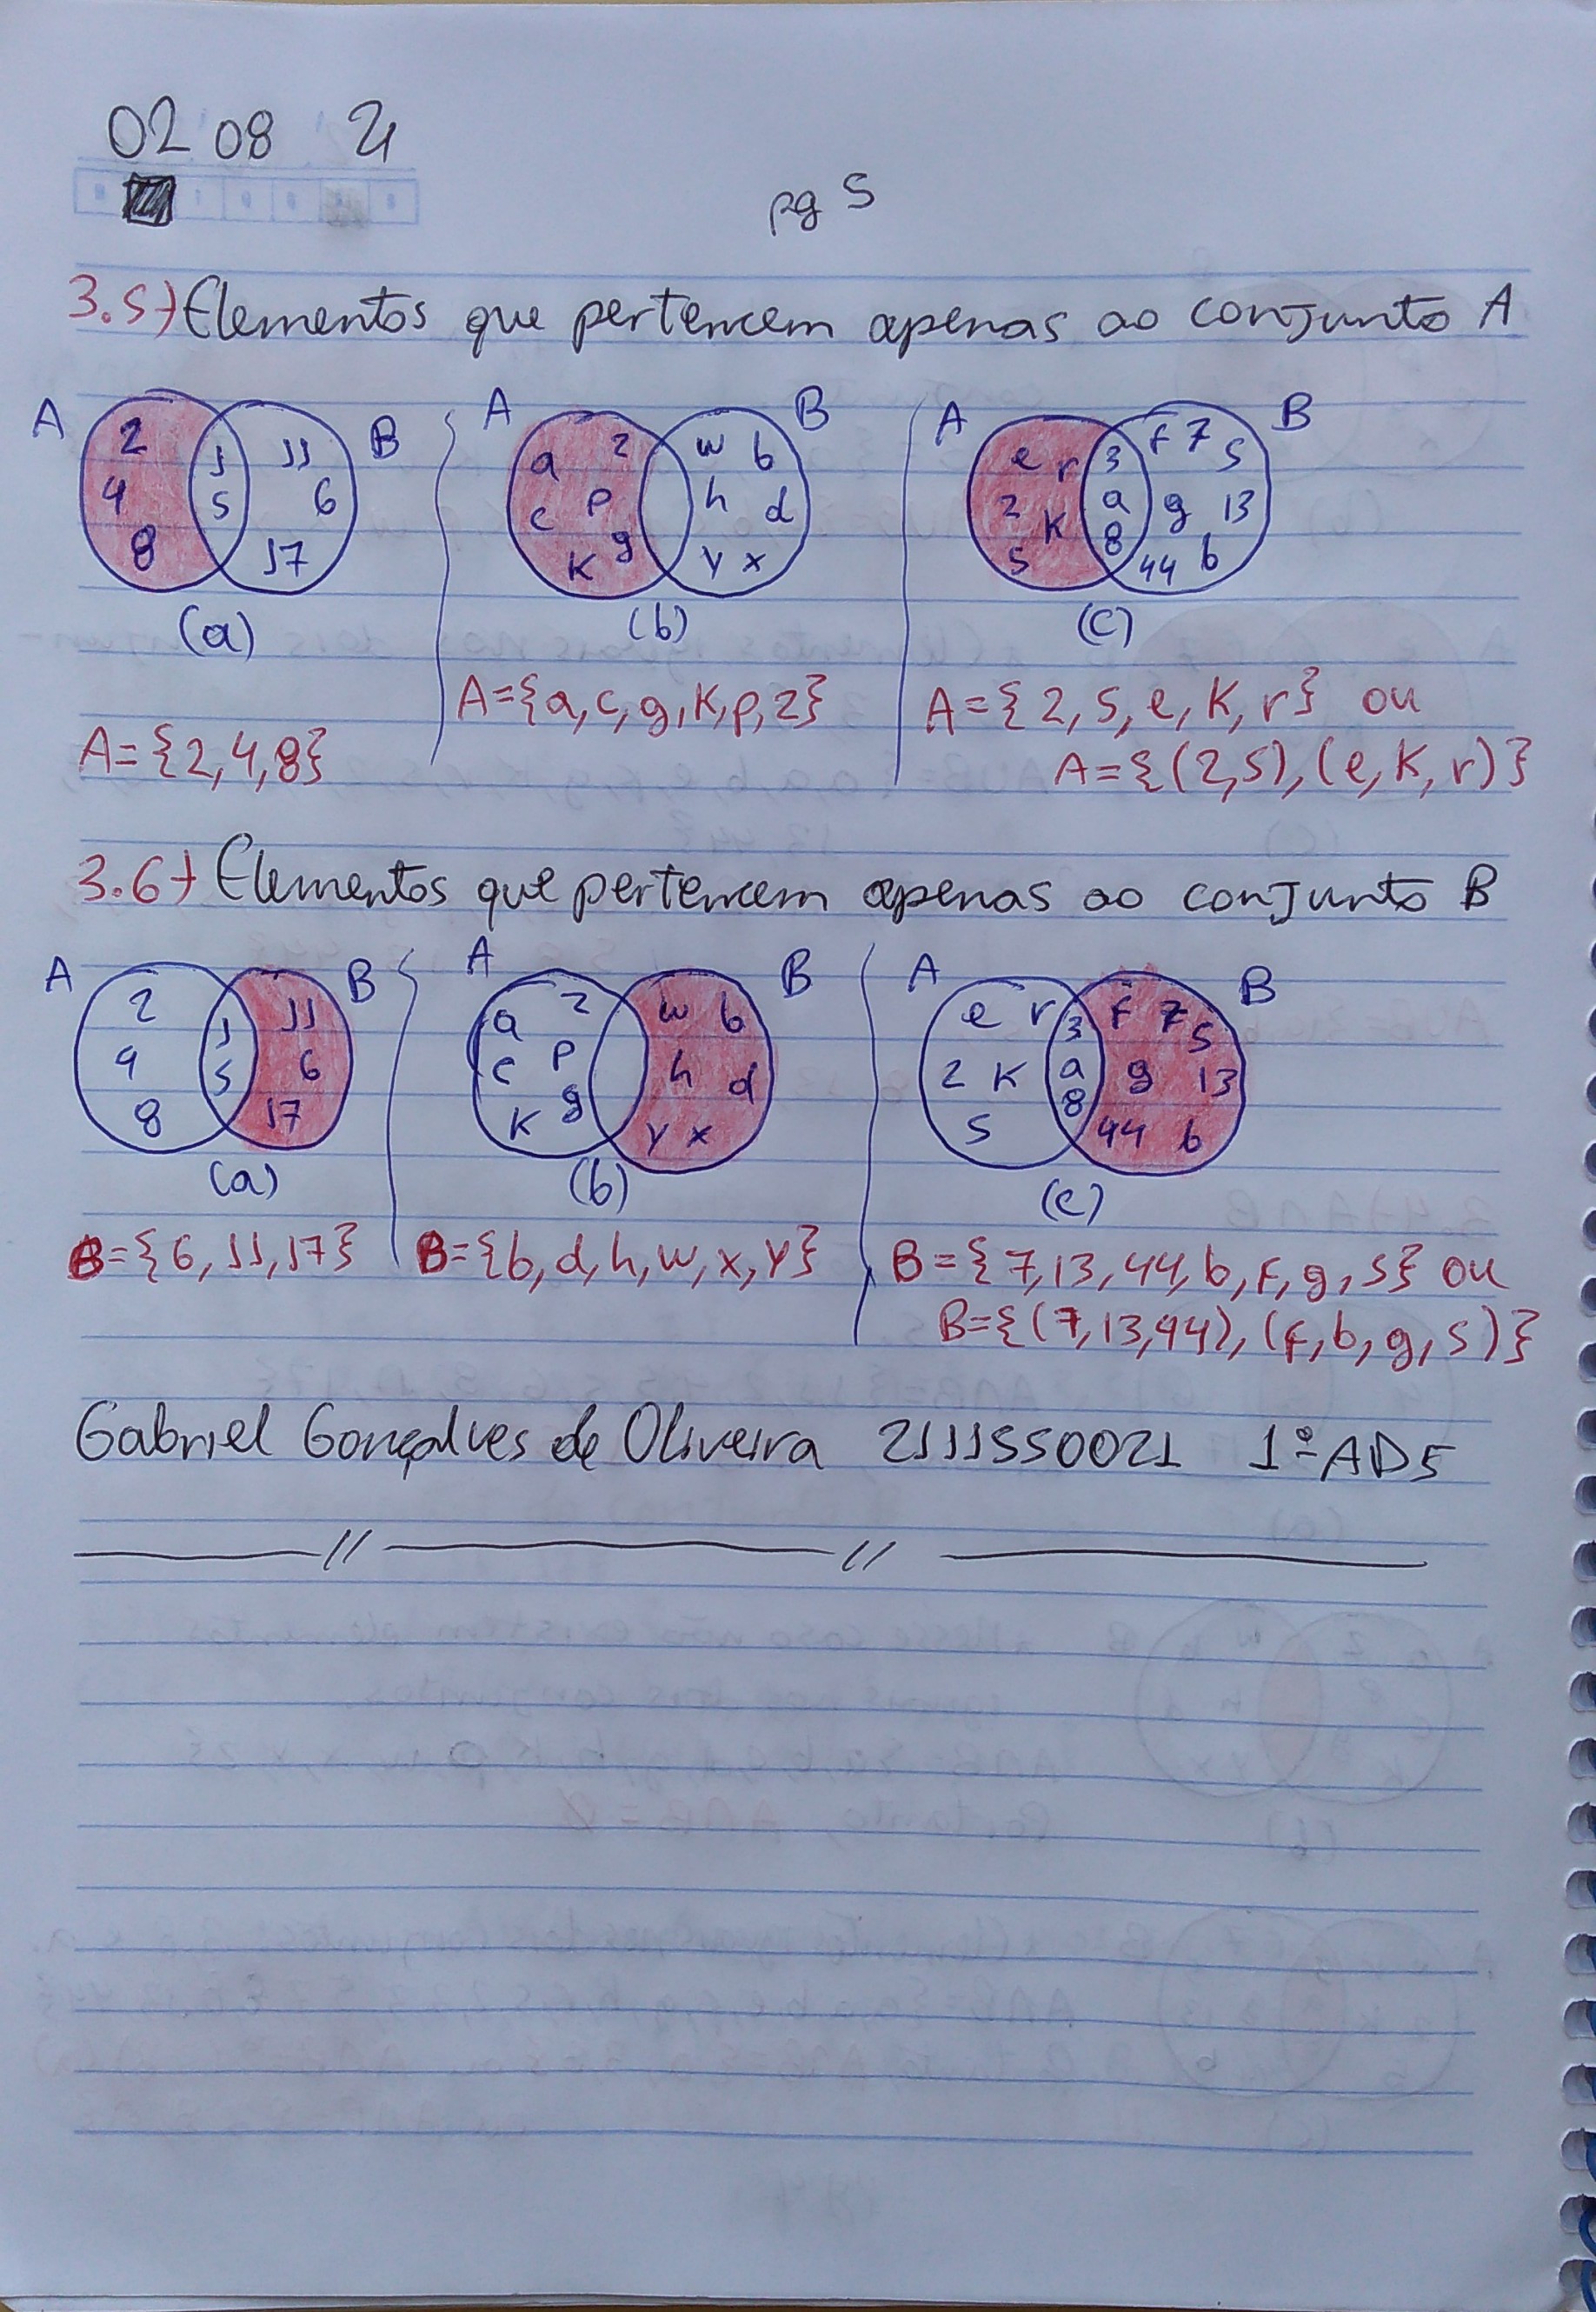 02 08 21
pg 5
3.5) Elementos que pertencem apenas ao conjunto A
A 2 4 8 1 5 11 6 17 B
(a)
A={2,4,8}
A a z c p k g w b h d y x B
(b)
A={a,c,g,K,p,z}
A e r 2 K 5 3 a 8 f 7 s g 13 44 b B
(c)
A={2,5,e,K,r} ou
A={(2,5),(e,K,r)}
3.6) Elementos que pertencem apenas ao conjunto B
A 2 4 8 1 5 11 6 17 B
(a)
B={6,11,17}
A a z c p k g w b h d y x B
(b)
B={b,d,h,w,x,y}
A e r 2 K 5 3 a 8 f 7 s g 13 44 b B
(c)
B={7,13,44,b,f,g,s} ou
B={(7,13,44),(f,b,g,s)}
Gabriel Gonçalves de Oliveira 2111550021 1º AD5